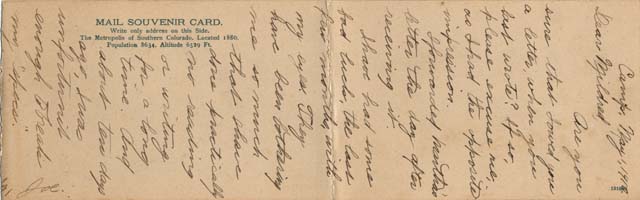 MAIL SOUVENIR CARD.
Write only address on this Side.
The Metropolis of Southern Colorado. Located 1880.
Population 8634, Altitude 6529 Ft.
Camp, May 1,
Dear Mildred
Are you
sure that I owed you
a letter, when you
last wrote? If so,
please excuse me,
as I had the opposite
impression.
I forwarded
letter the day after
receiving it.
Have had some
bad luck, the last
few months, with
my eyes. They
have been bothering
me so much
that I have
done practically
no reading
or writing
for a long
time. And
about ten days
ago, I was
unfortunate
enough to break
my "specs."
Joe.